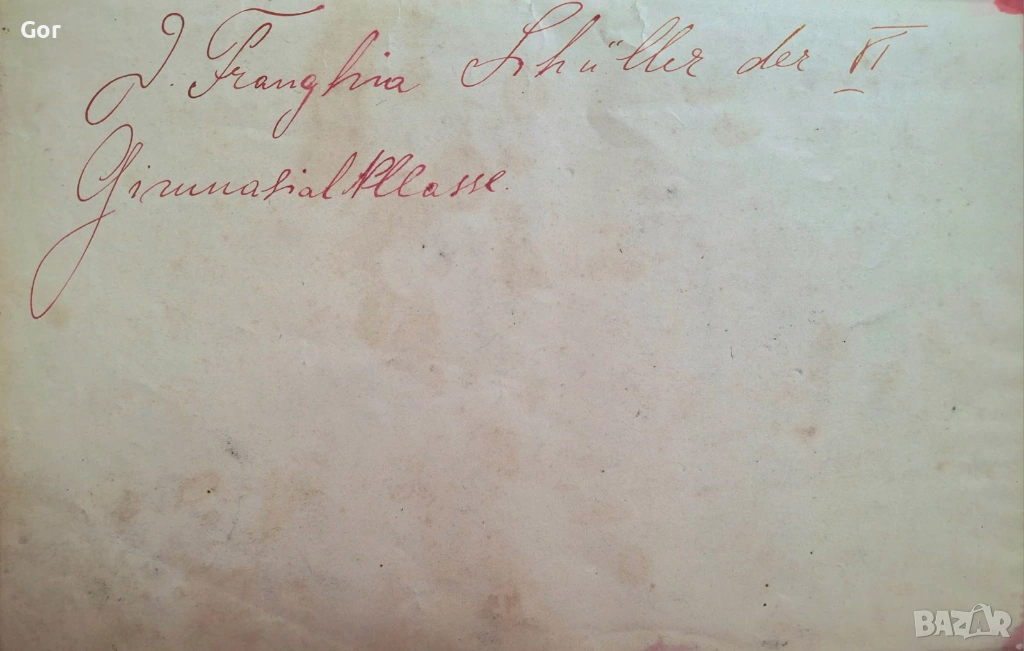 Gor
J. Franghia Schüller der VI
Gimnasial Klasse.
BAZAR